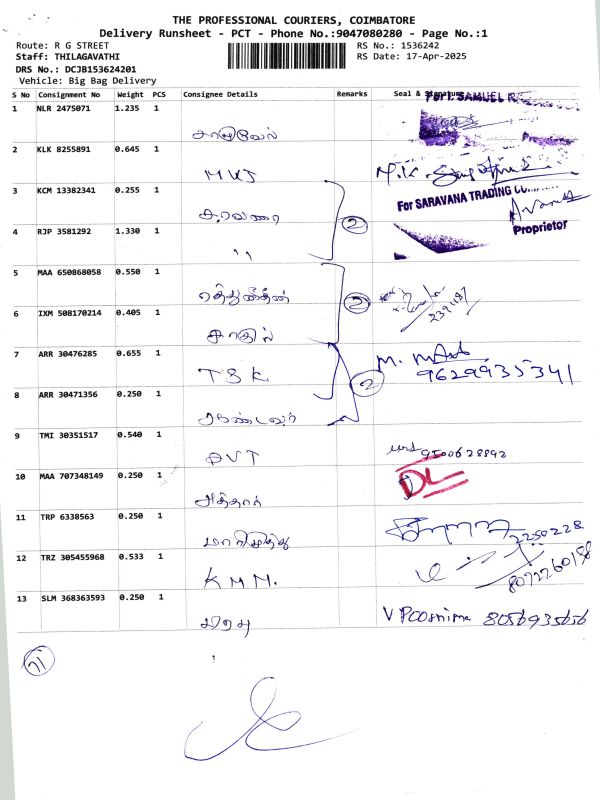 THE PROFESSIONAL COURIERS, COIMBATORE
Delivery Runsheet - PCT - Phone No.:9047080280 - Page No.:1
Route: R G STREET
RS No.: 1536242
Staff: THILAGAVATHI
RS Date: 17-Apr-2025
DRS No.: DCJB153624201
Vehicle: Big Bag Delivery
S No Consignment No Weight PCS Consignee Details Remarks Seal & Signature
For I. SAMUEL
1 NLR 2475071 1.235 1
சாமுவேல்
2 KLK 8255891 0.645 1
MKS M.K.
3 KCM 13382341 0.255 1
சரவணா ② For SARAVANA TRADING COMPANY
Proprietor
4 RJP 3581292 1.330 1
"
5 MAA 650868058 0.550 1
②
6 IXM 508170214 0.405 1
7 ARR 30476285 0.655 1
TSK ② M.
9629935341
8 ARR 30471356 0.250 1
9 TMI 30351517 0.540 1
DVT 9500628892
10 MAA 707348149 0.250 1
DL
11 TRP 6338563 0.250 1
மாரிமுத்து 2250228
12 TRZ 305455968 0.533 1
KMM. 8072260158
13 SLM 368363593 0.250 1
V Poornima 8056935656